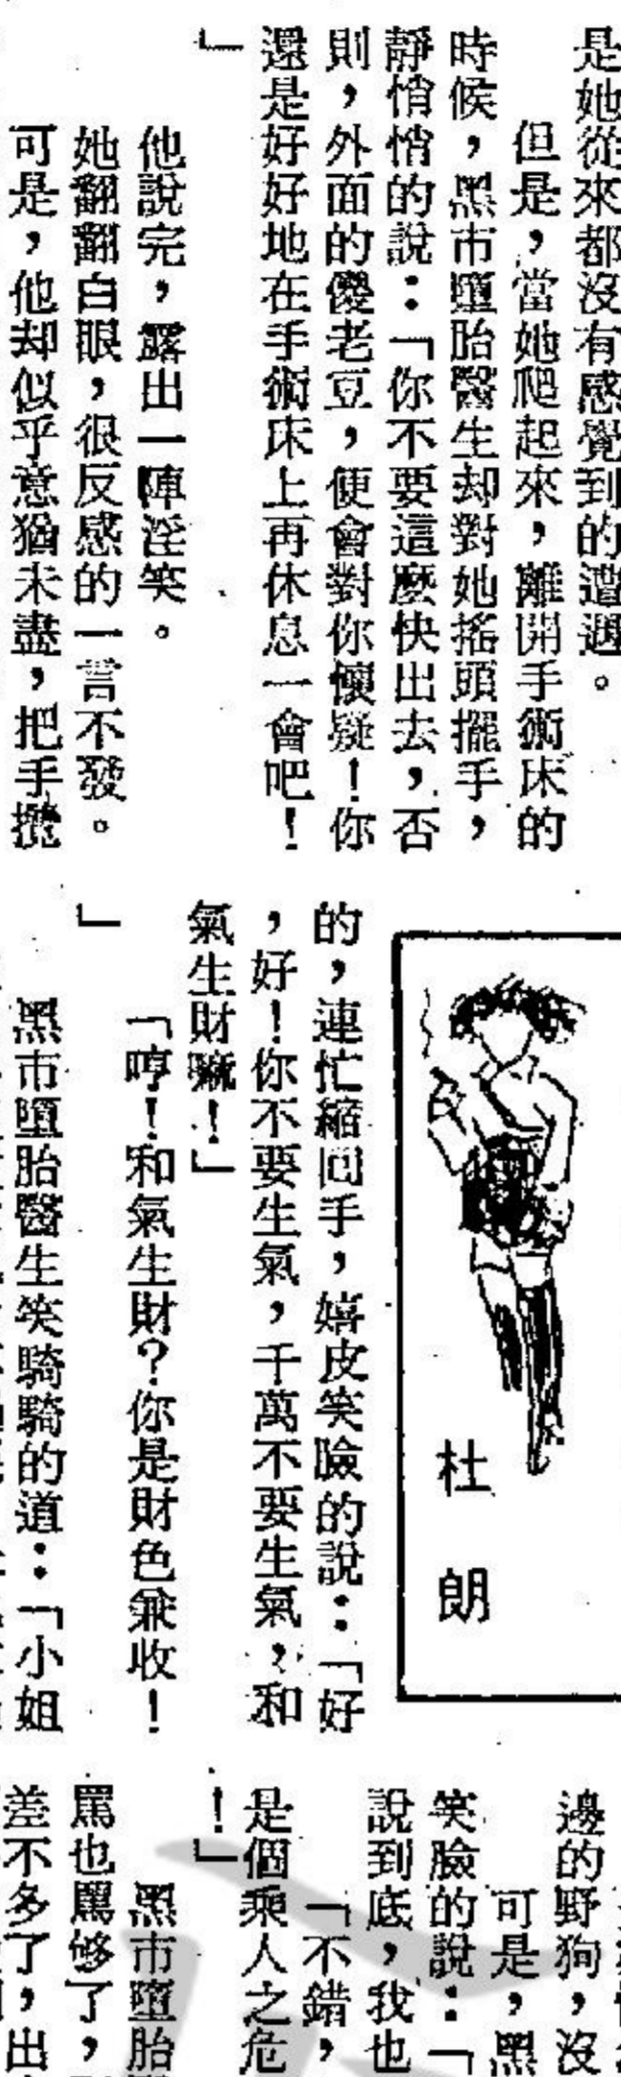 是她從來都沒有感覺到的遭遇。
但是，當她爬起來，離開手術床的
時候，黑市墮胎醫生却對她搖頭擺手，
靜悄悄的說：「你不要這麼快出去，否
則，外面的傻老豆，便會對你懷疑！你
還是好好地在手術床上再休息一會吧！
」
他說完，露出一陣淫笑。
她翻翻白眼，很反感的一言不發。
可是，他却似乎意猶未盡，把手攬
杜朗
的，連忙縮回手，嬉皮笑臉的說：「好
，好！你不要生氣，千萬不要生氣，和
氣生財嘛！」
「哼！和氣生財？你是財色兼收！
」
黑市墮胎醫生笑騎騎的道：「小姐
邊的野狗，沒
可是，黑
笑臉的說：「
說到底，我也
「不錯，
是個乘人之危
！」
黑市墮胎
罵也罵够了，
差不多了，出